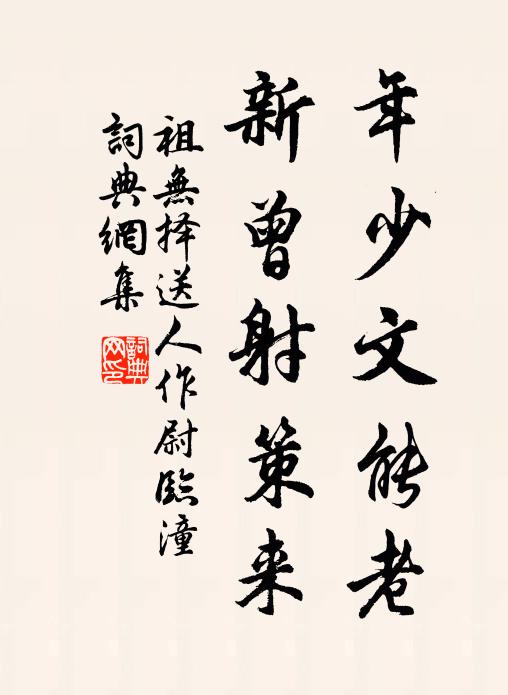 年少文能老
新曾射策来
祖無择送人作尉臨潼
詞典網集
詞典網印